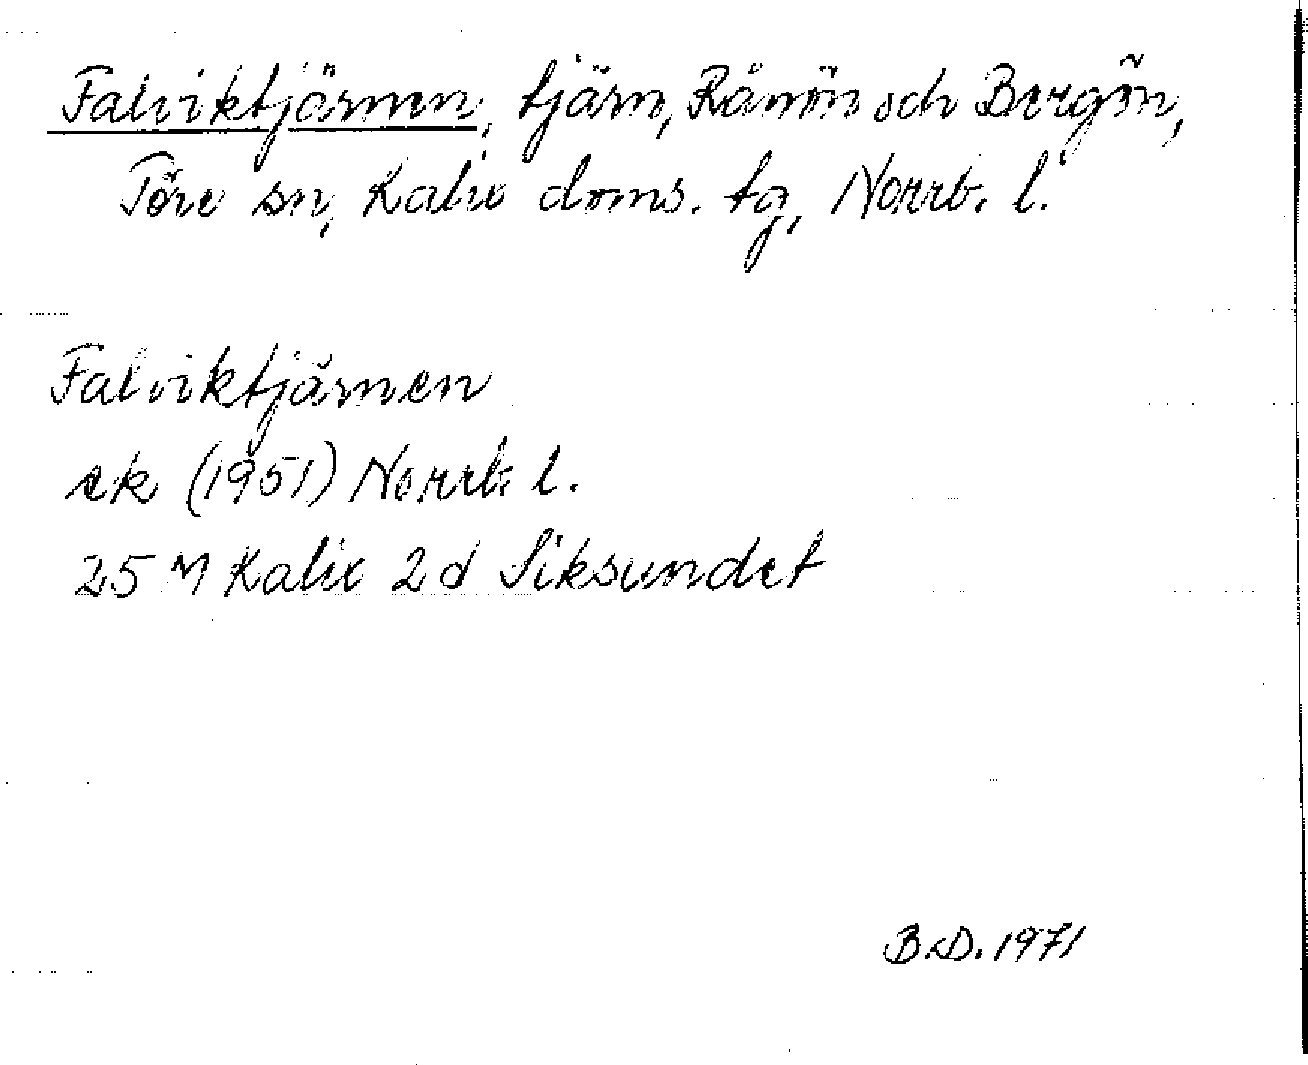 Falviktjärnen, tjärn, Rånön och Bergön,
Töre sn, Kalix doms. tg, Norrb. l.
Falviktjärnen
ek (1951) Norrb. l.
25 M Kalix 2d Siksundet
B.D. 1971